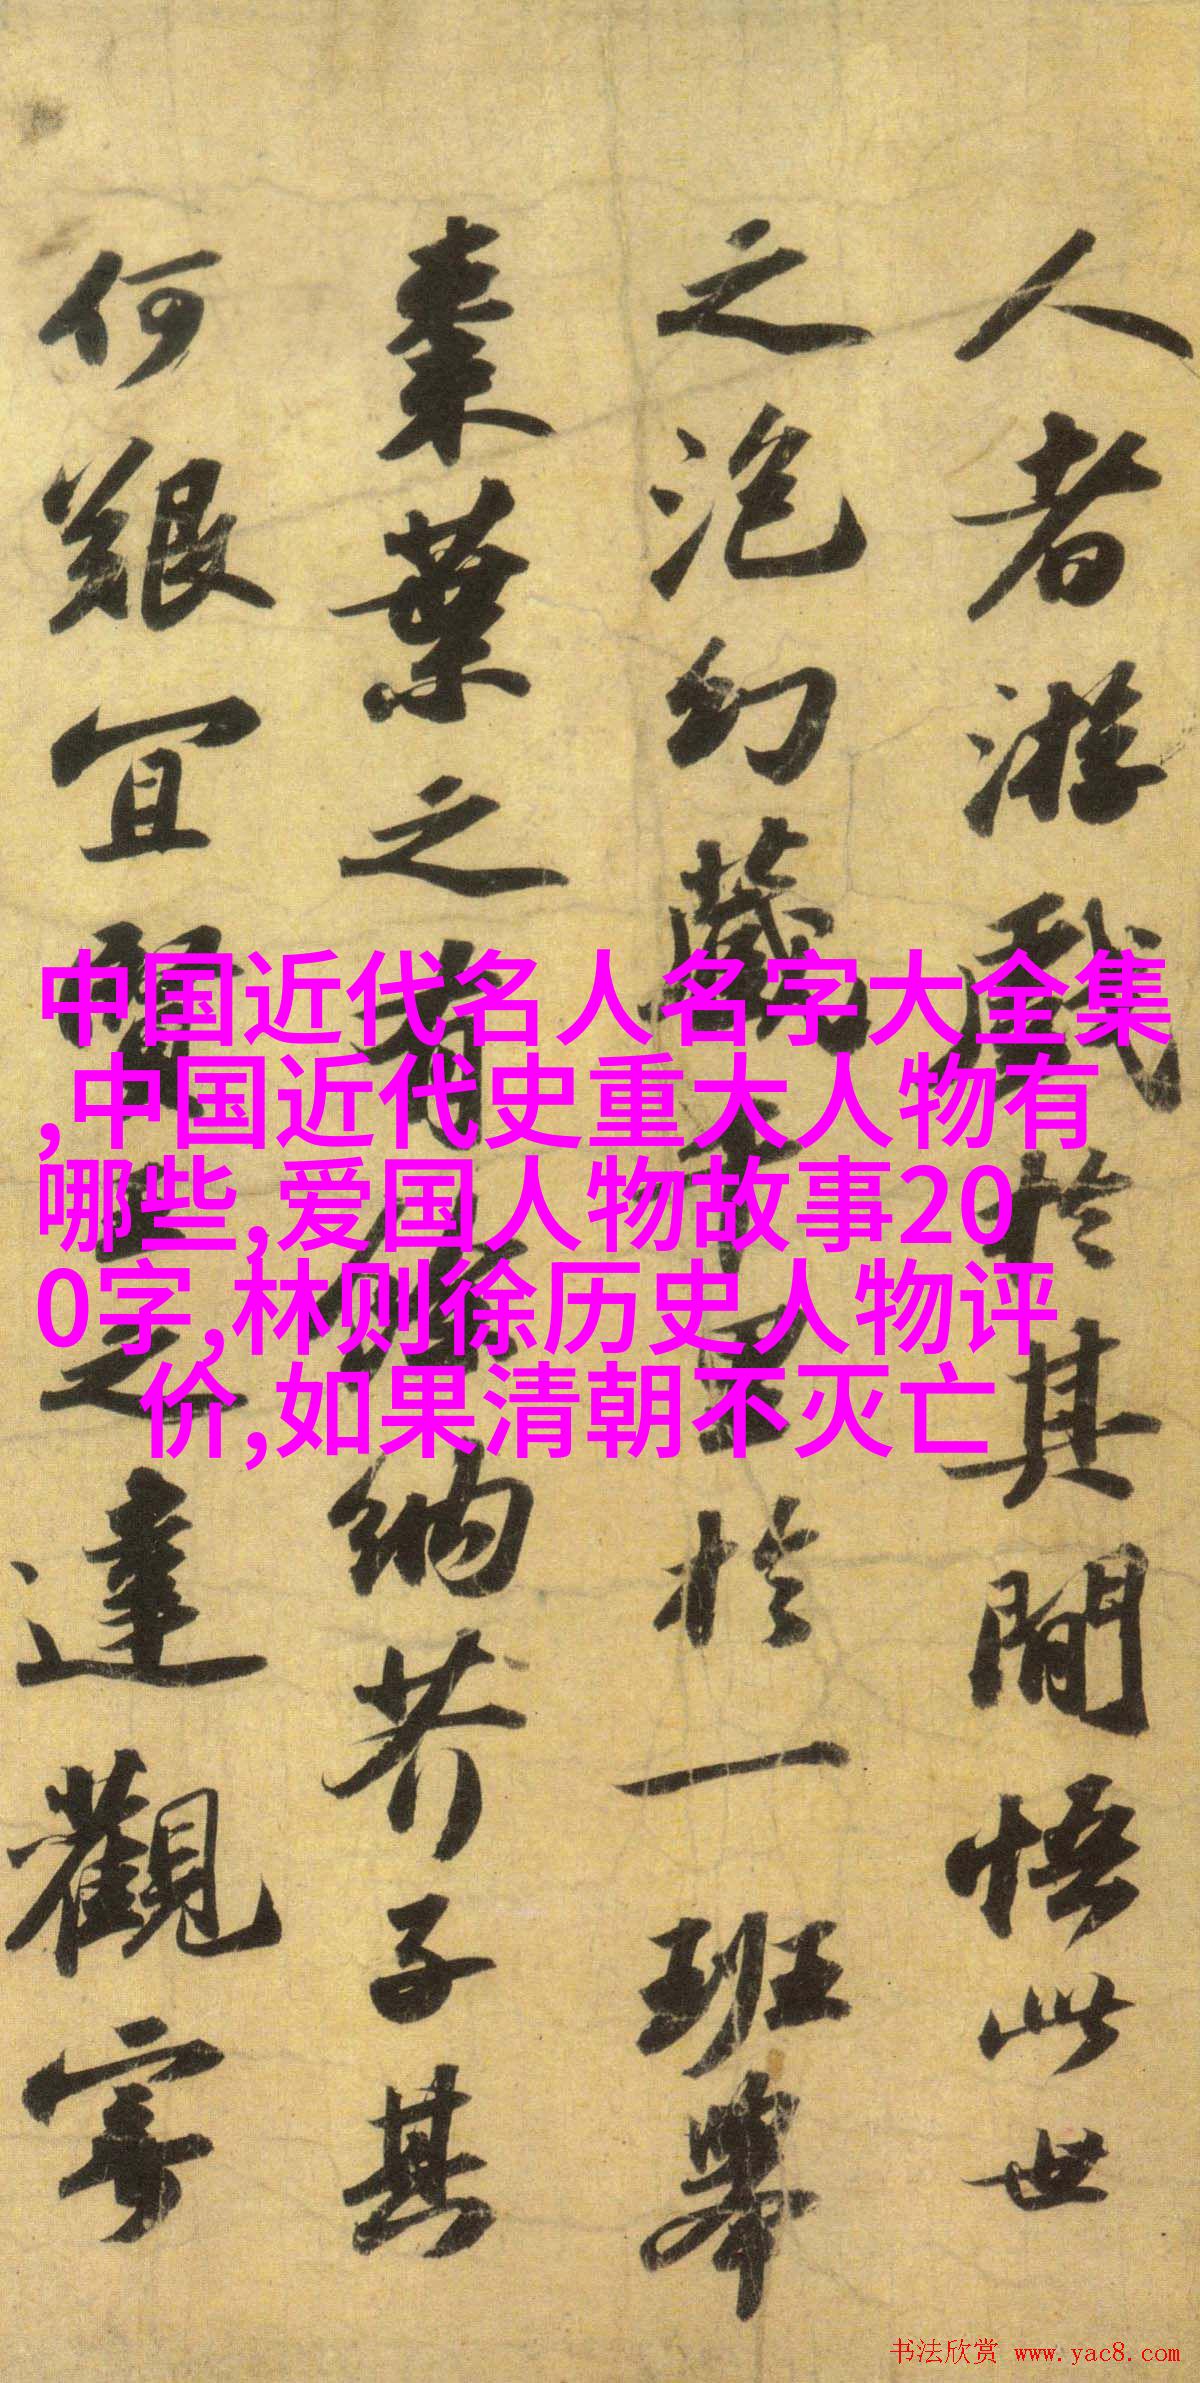 人者游戲於其閒悟此世
之泡幻藏千里於一班舉
棗葉之有餘納芥子其
何艱宜賢王之達觀寄
中国近代名人名字大全集
,中国近代史重大人物有
哪些,爱国人物故事20
0字,林则徐历史人物评
价,如果清朝不灭亡
书法欣赏 www.yac8.com